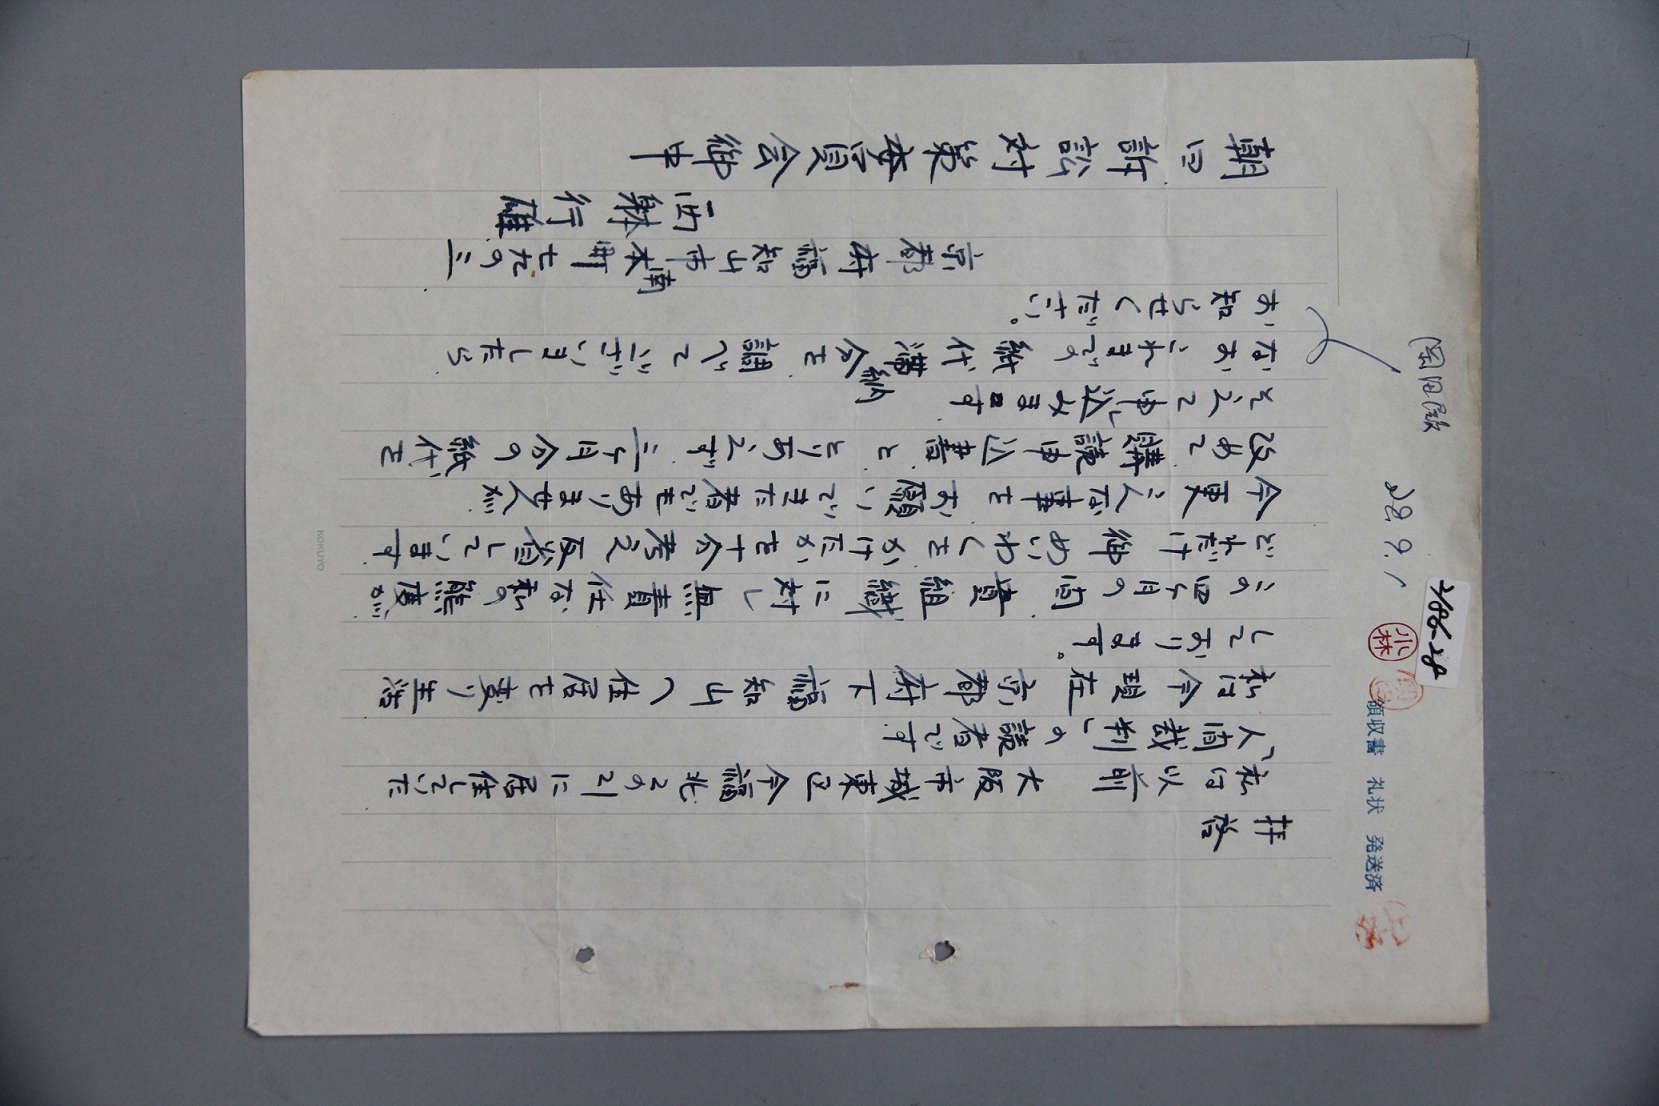 拝啓
私は以前 大阪市城東区今福北2の21に居住していた
「人間裁判」の読者です
私は今現在京都府下福知山へ住居を変り生活
しております。
この四ヶ月の間貴組織に対し無責任な私の態度が
どれだけ御めいわくをかけたかを十分考え反省しています
今更こんな事をお願いできた者でもありませんが
改めて購読申込書と とりあえず三ヶ月分の紙代を
そえて申し込みます
なおこれまでの紙代滞納分を調べてございましたら
お知らせください。
京都府福知山市南本町七九の三
西躰行雄
朝日訴訟対策委員会御中
28.9.1
2186-28
小林
領収書 礼状 発送済
KOKUYO